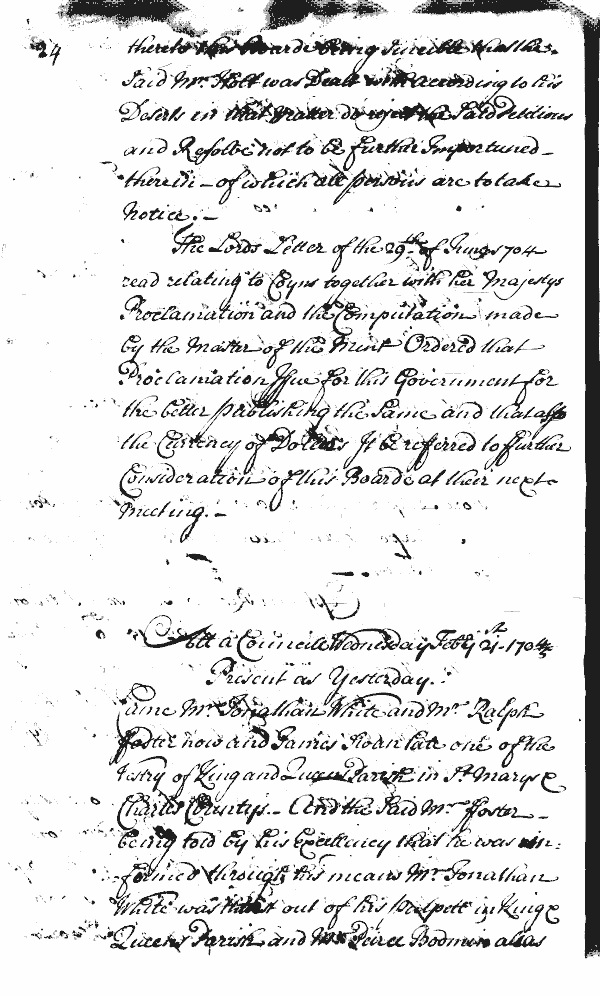 24
thereto this Boarde being Sencible that the
Said Mr. Holt was Dealt with according to his
Deserts in that Matter do reject the Said Petitions
and Resolve not to be further Importuned
therein - of which all persons are to take
Notice. -
The Lords Letter of the 29th of June 1704
read relating to Coyns together with her Majestys
Proclamation and the Computation made
by the Master of the Mint Ordered that
Proclamation Issue for this Government for
the better publishing the Same and that also
the Currency of Dollers It be referred to further
Consideration of this Boarde at their next
meeting. -
Att a Councill Wednesday Febry 21st 1704/5
Present as Yesterday.
Came Mr. Jonathan White and Mr. Ralph
ffoster now and James late one of the
Vestry of King and Queen Parish in St. Marys &
Charles Countys - And the Said Mr. ffoster -
being told by his Excellency that he was in:
formed through his means Mr. Jonathan
White was out of his pulpett in King &
Queens Parish and Mr. Peirce Bodmin alias